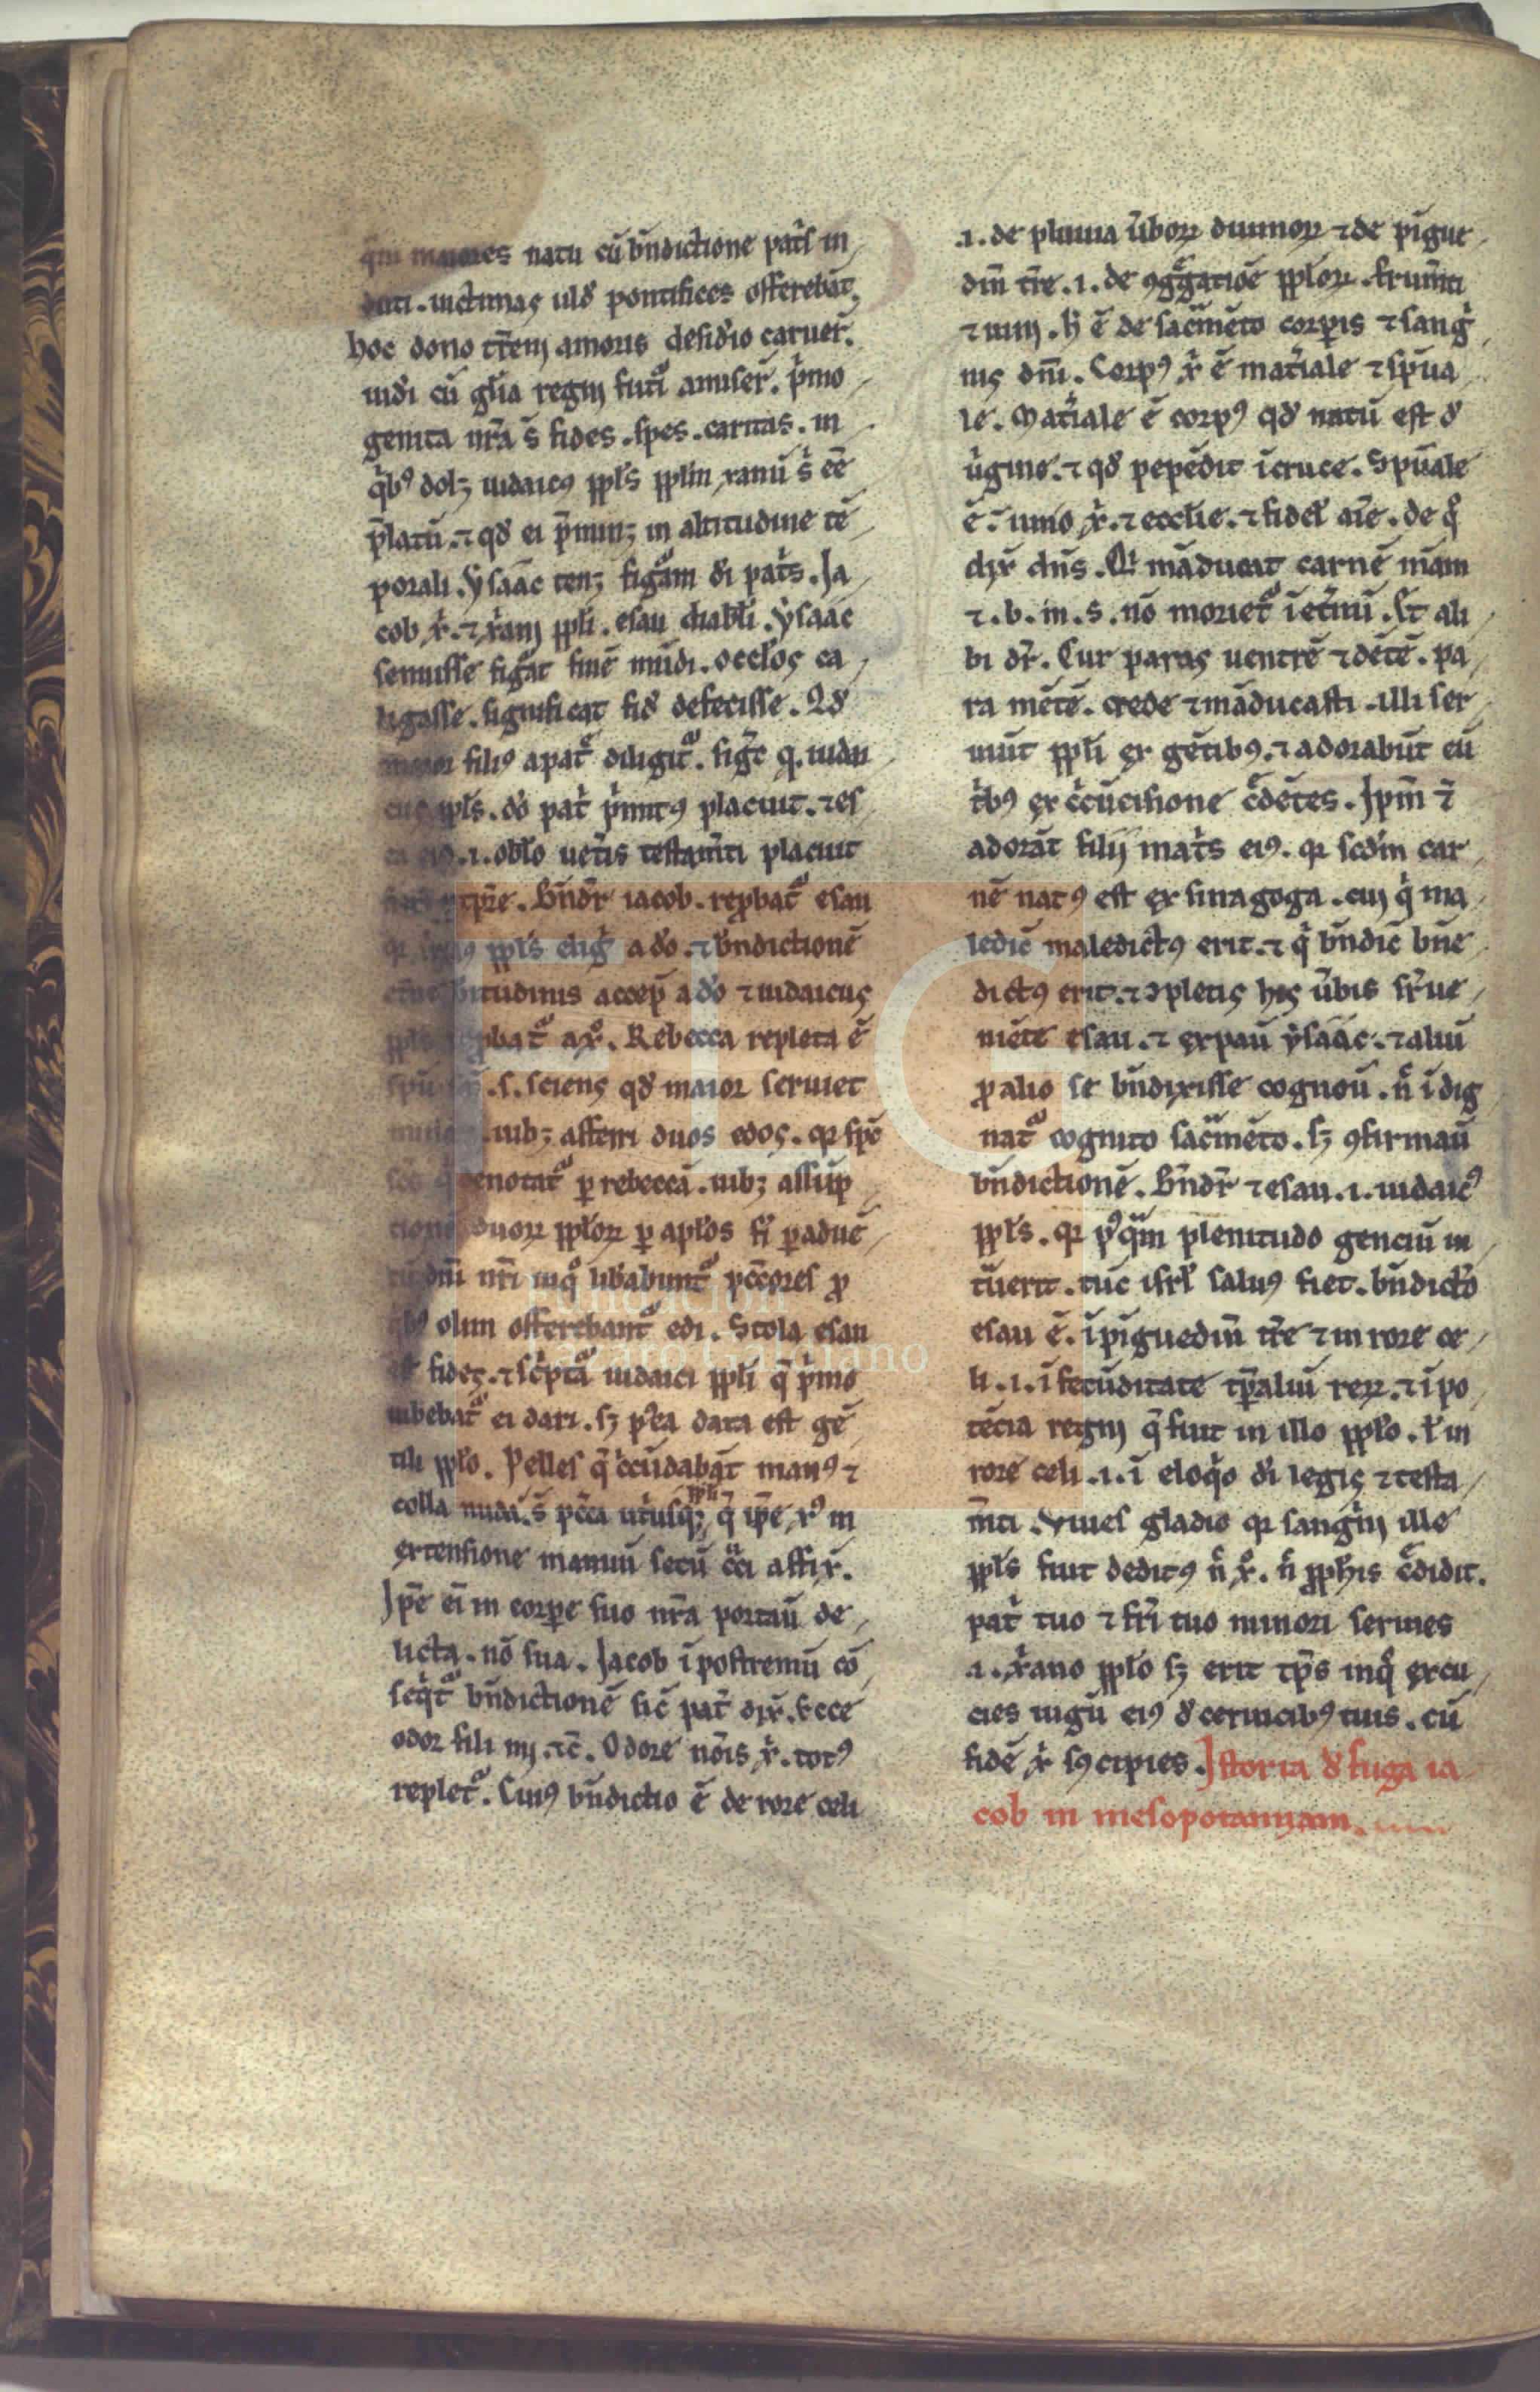 natu cū bn̄dictione pat̾s in
duti . uictimas uld̾ pontifices offerebāt.
hoc dono tr̄eni amoris desid̾io caruer̄.
iud̾i cū gl̾ia regni futi᷑ amiser̄. p̾mo
genita nr̄a s̄ fides . spes . caritas . in
q̾bꝰ dolꝫ iudaicꝰ ppl̾s ppl̾m xanū s̾ ēē
p̄latū . ⁊ qd̾ ei p̄minꝫ in altitudine tē
porali . ẏsaac tenꝫ figᷓam di pat̾s . Ja
cob x̾ . ⁊ x̾ani ppl̾i . esau diabl̾i . ẏsaac
senuisse figᷓat finē mūdi . occl̾os ca
ligasse . significat fid̾ defecisse . Qd̾
filiꝰ a pat̾ diligit᷑ . fig̾t q . iudai
ppl̾s . do pat̾ p̾mitꝰ placuit . ⁊ es
.i. obl̾o uet̾is testam̄ti placuit
Bn̄dr̄ iacob . rep̱bat᷑ esau
ppl̾s elig̾ a do . ⁊ bn̄dictionē
accep̄ a do ⁊ iudaicus
a x̊ . Rebecca repleta ē
.s. sciens qd̾ maior seruiet
iubꝫ afferri duos edos . qꝛ sp̄c
denotat᷑ ꝑ rebeccā . iubꝫ assūp
duoꝝ ppl̾oꝝ ꝑ apl̾os fi̾ ꝑ aduē
dn̄i nr̄i in q̊ lib̾abunt᷑ pc̄cores ꝓ
olim offerebant᷑ edi . Stola esau
fides . ⁊ sc̾pta᷑ iudaici ppl̾i q̄ p̾mo
iubebat᷑ ei dari . sꝫ p̾ea data est gē
tili ppl̾o . Pelles q̄ c̾cūdabāt manꝰ ⁊
colla nuda . s̄ pc̄ca ut̾usqꝫ ppl̾i q̄ ip̄e x̊ in
extensione manuū secū c̾ci affix̄ .
Jp̄e ei̅ in corꝑe suo nr̄a portau̅ de
licta . nō sua . Jacob ī postremū cō
seq̾t᷑ bn̄dictionē sic̄ pat̾ dix̄ . Ecce
odor fili mi . ⁊c̄ . Odore nōis x̾ . totꝰ
replet᷑ . Cuiꝰ bn̄dictio ē de rore celi
.i. de pluuia ūboꝝ diuinoꝝ ⁊ de pīgue
din̄ tr̄e . i . de ꝯgᷓgatiōe ppl̾oꝝ . frum̄ti
⁊ uini . h̄ ē de sacᷓmēto corꝑis ⁊ sang̾
nis dn̄i . Corpꝰ x̾ ē mat̾iale ⁊ sp̄ua
le . Mat̾iale ē corpꝰ qd̾ natū est d̾
u̾gine . ⁊ qd̾ pepēdit ī cruce . Sp̄uale
ē . unio x̾ . ⁊ eccl̾ie . ⁊ fidel̾ aīe . de q̊
dix̄ dn̄s . Qi māducat carnē mām
⁊ . b . m . s . nō moriet᷑ ī et̾nū . Et ali
bi dr̄ . Cur paras uentrē ⁊ dētē . pa
ra mētē . crede ⁊ māducasti . illi ser
uiūt ppl̾i ex gētibꝰ . ⁊ adorabūt eū
t̾bꝰ ex c̾cūcisione c̾dētes . Jpm̄ ⁊̄
adorāt filij mat̾s eiꝰ . qꝛ scd̾m car
nē natꝰ est ex sinagoga . cui q̾ ma
ledic̄ maledictꝰ erit . ⁊ q̾ bn̄dic̄ bn̄e
dictꝰ erit . ⁊ ꝯpletis his ūbis sr̄ue
niēte esau . ⁊ expau̅ ẏsaac . ⁊ aliū
ꝓ alio se bn̄dixisse cognou̅ . n̾ ī dig
nat᷑ cognito sacᷓmēto . sꝫ ꝯfirmau̅
bn̄dictionē . Bn̄dr̄ ⁊ esau . i . iudaicꝰ
ppl̾s . qꝛ pꝰqᷓm plenitudo genciū in
tūerit . tūc isrl̾ saluꝰ fiet . bn̄dict̾o
esau ē . ī pīguedin̄ tr̄e ⁊ in rore ce
li . i . ī fecūditate tꝑaliū reꝝ . ⁊ ī po
tēcia regni q̄ fuit in illo ppl̾o . t̾ in
rore celi . i . ī eloq̾o di legis ⁊ testa
m̄ti . Viues gladio qꝛ sang̾ni ille
ppl̾s fuit deditꝰ n̾ x̊ . n̾ ꝓph̾is c̾didit .
pat̾ tuo ⁊ fr̄i tuo minori seruies
.i. x̾ano ppl̾o sꝫ erit tp̄s in q̊ excu
cies iugū eiꝰ d̾ ceruicibꝰ tuis . cū
fidē x̾ sꝰcipies . Jstoria d̾ fuga ia
cob in mesopotamiam .